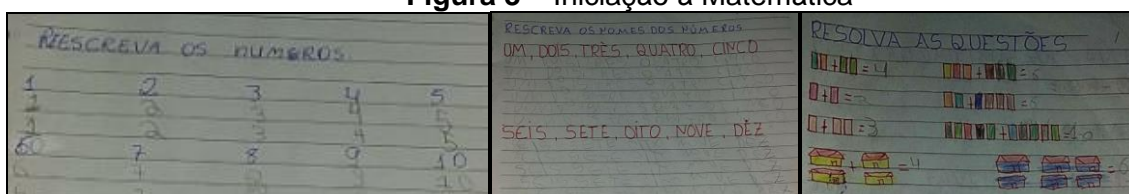 Figura 3 – Iniciação à Matemática
REESCREVA OS NUMEROS.
1 2 3 4 5
1 2 3 4 5
1 2 3 4 5
6 7 8 9 10
6 7 8 9 10
RESCREVA OS NOMES DOS NÚMEROS
UM, DOIS, TRÊS, QUATRO, CINCO
SEIS, SETE, OITO, NOVE, DÉZ
RESOLVA AS QUESTÕES
+ = 4
+ = 2
+ = 3
+ = 4